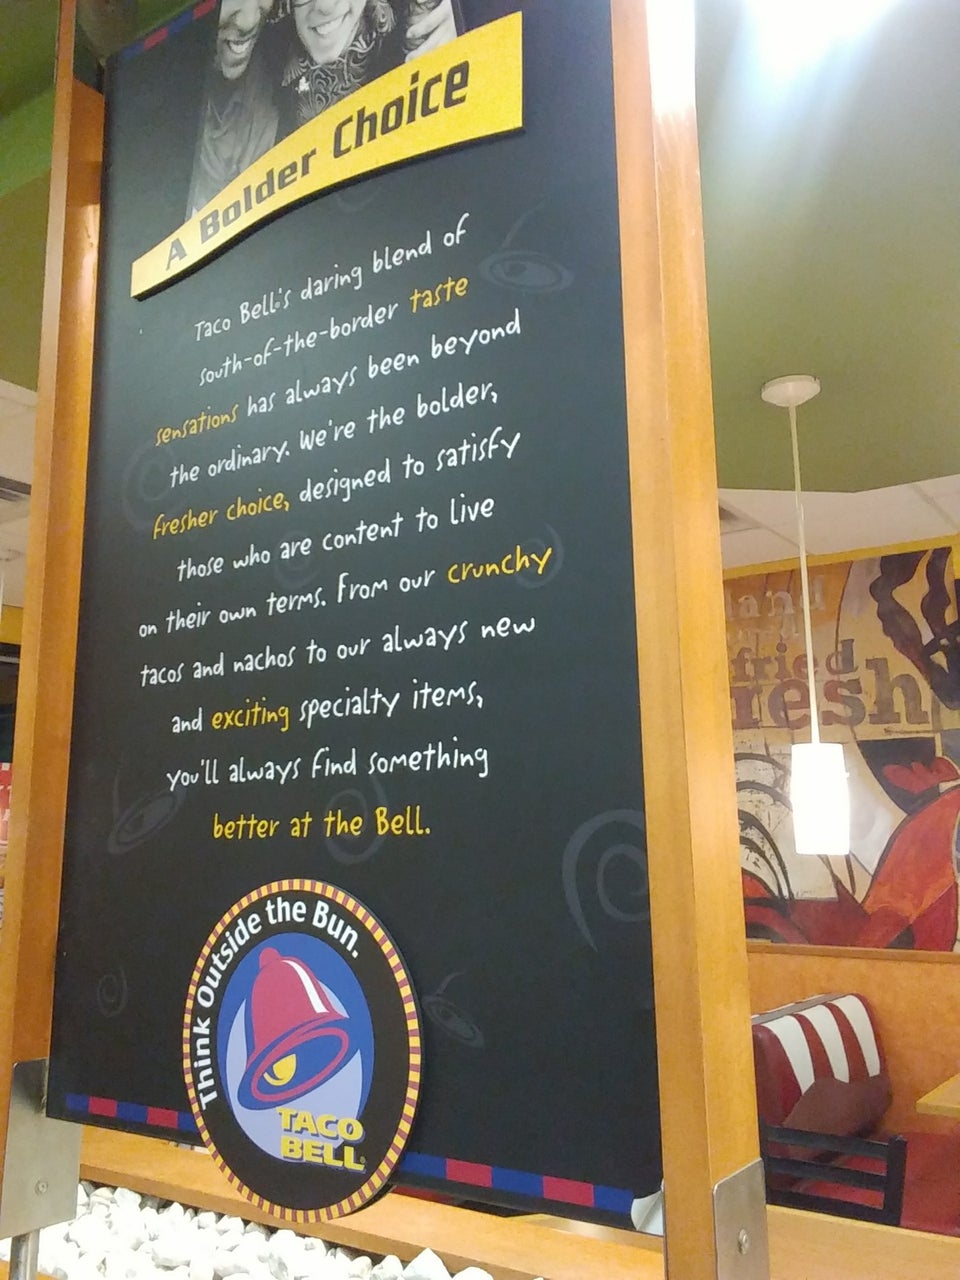 A Bolder Choice
Taco Bell®'s daring blend of
south-of-the-border taste
sensations has always been beyond
the ordinary. We're the bolder,
fresher choice, designed to satisfy
those who are content to live
on their own terms. From our crunchy
tacos and nachos to our always new
and exciting specialty items,
you'll always find something
better at the Bell.
Think Outside the Bun.
TACO
BELL®
land
fried
resh